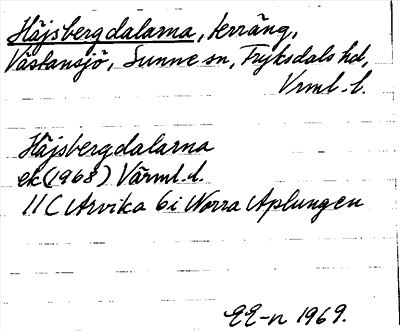 Häjsbergdalarna, terräng,
Västansjö, Sunne sn, Fryksdals hd,
Vrml. l.
Häjsbergdalarna
ek (1968) Värml. l.
11 C Arvika 6i Norra Aplungen
EE-n 1969.